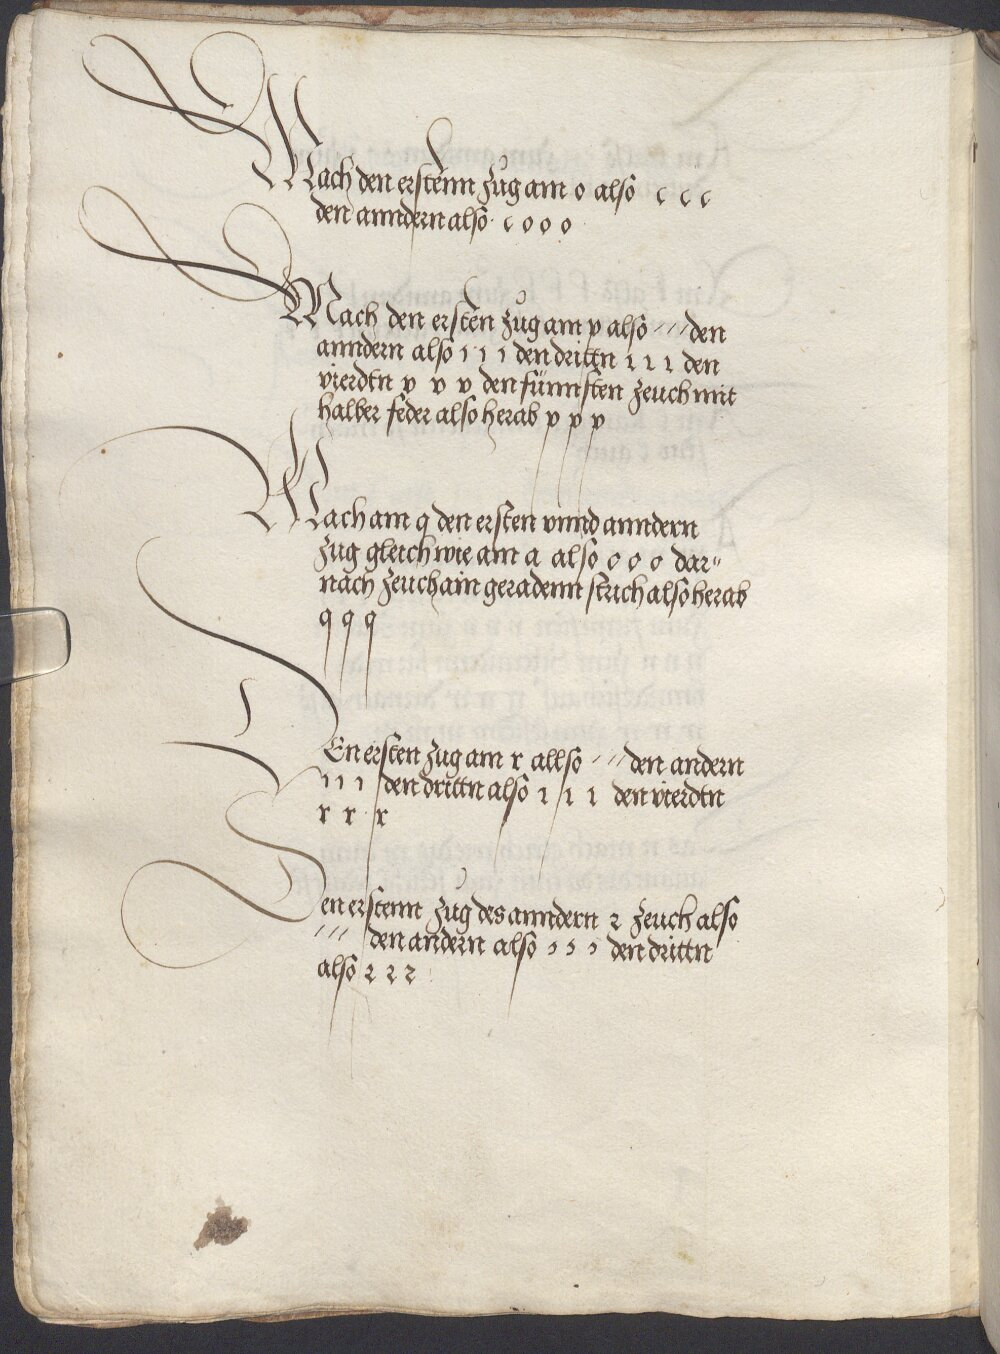 Mach den erstenn Zug am o also c c c
den anndern also c o o o
Mach den ersten Zug am p also ⸍ ⸍ ⸍ den
anndern also ı ı ı den drittn ı ı ı den
vierdtn v v v den fünnften zeuch mit
halber feder also herab p p p
Mach am q den ersten vnnd anndern
Zug gleich wie am a also o o o dar⸗
nach zeuch ain geradenn strich also herab
q q q
DEn ersten Zug am r allso ⸍ ⸍ ⸍ den andern
ı ı ı den drittn also ı ı ı den vierdtn
r r r
Den erstenn Zug des anndern ꝛ zeuch also
⸍ ⸍ ⸍ den andern also ɔ ɔ ɔ den drittn
also ꝛ ꝛ ꝛ